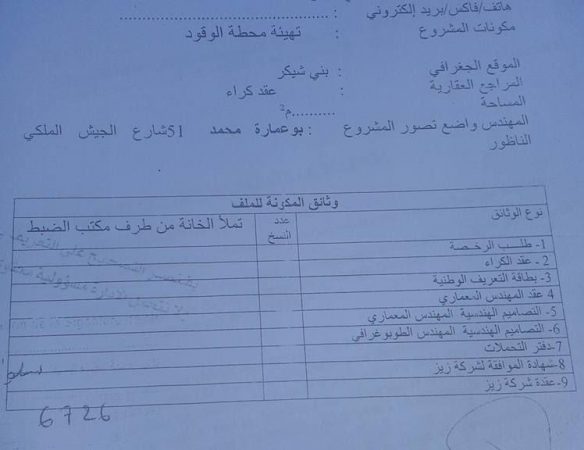 هاتف/فاكس/بريد إلكتروني :
مكونات المشروع : تهيئة محطة الوقود
الموقع الجغرافي : بني شيكر
المراجع العقارية : عقد كراء
المساحة ..........م²
المهندس واضع تصور المشروع : بوعمارة محمد 51شارع الجيش الملكي
الناظور
وثائق المكونة للملف
نوع الوثائق عدد النسخ تملأ الخانة من طرف مكتب الضبط
1- طلب الرخصة
2- عقد الكراء
3- بطاقة التعريف الوطنية
4 عقد المهندس المعماري
5- التصاميم الهندسية المهندس المعماري
6- التصاميم الهندسية المهندس الطوبوغرافي
7-دفتر التحملات
8-شهادة الموافقة لشركة زيز
9-عقدة شركة زيز
6726